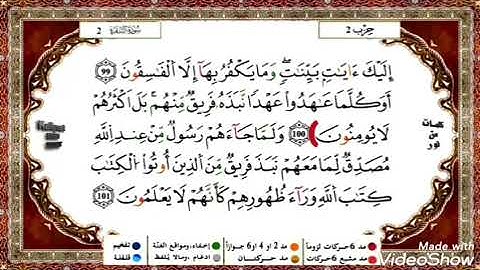 حزب 2
سورة البقرة 2
إِلَيْكَ ءَايَٰتٍۭ بَيِّنَٰتٍ ۖ وَمَا يَكْفُرُ بِهَآ إِلَّا ٱلْفَٰسِقُونَ 99
أَوَكُلَّمَا عَٰهَدُوا۟ عَهْدًا نَّبَذَهُۥ فَرِيقٌ مِّنْهُم ۚ بَلْ أَكْثَرُهُمْ
لَا يُؤْمِنُونَ 100 وَلَمَّا جَآءَهُمْ رَسُولٌ مِّنْ عِندِ ٱللَّهِ
مُصَدِّقٌ لِّمَا مَعَهُمْ نَبَذَ فَرِيقٌ مِّنَ ٱلَّذِينَ أُوتُوا۟ ٱلْكِتَٰبَ
كِتَٰبَ ٱللَّهِ وَرَآءَ ظُهُورِهِمْ كَأَنَّهُمْ لَا يَعْلَمُونَ 101
كلمات
من
نور
مد 6 حركات لزوماً مد 2 او 4 او 6 جوازاً إخفاء، ومواقع الغنّة تفخيم
مد مشبع 6 حركات مد حركتان ادغام، ومالا يلفظ قلقلة
Made with
VideoShow